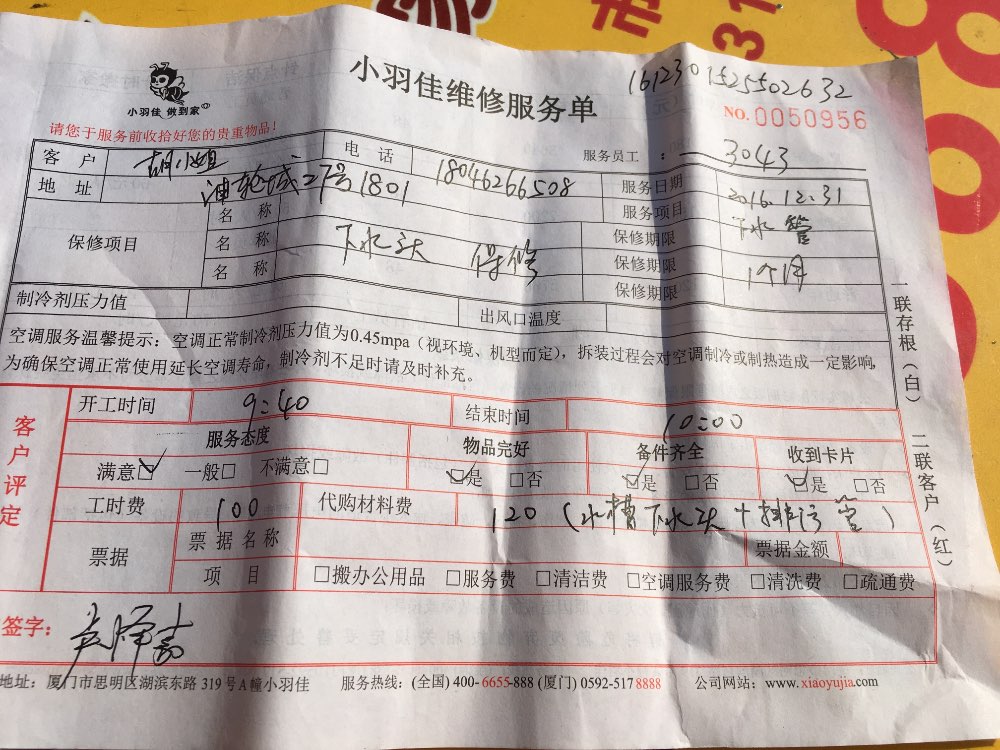 小羽佳 做到家
小羽佳维修服务单
1612301525502632
NO.0050956
请您于服务前收拾好您的贵重物品!
服务员工 : 3043
客户 胡小姐 电话 18046266508 服务日期 2016.12.31
地址 油轮城27号1801 服务项目 下水管
保修项目 名称 下水头 保修 保修期限 1个月
名称 保修期限
名称 保修期限
制冷剂压力值 出风口温度
空调服务温馨提示：空调正常制冷剂压力值为0.45mpa（视环境、机型而定），拆装过程会对空调制冷或制热造成一定影响，
为确保空调正常使用延长空调寿命，制冷剂不足时请及时补充。
一联存根（白） 二联客户（红）
客户评定
开工时间 9:40 结束时间 10:00
服务态度 物品完好 备件齐全 收到卡片
满意☑ 一般□ 不满意□ ☑是 □否 ☑是 □否 ☑是 □否
工时费 100 代购材料费 120（水槽下水头+排污管）
票据 票据名称 票据金额
项目 □搬办公用品 □服务费 □清洁费 □空调服务费 □清洗费 □疏通费
签字：
地址：厦门市思明区湖滨东路319号A幢小羽佳 服务热线：(全国) 400-6655-888 (厦门) 0592-5178888 公司网站：www.xiaoyujia.com
市
31
8